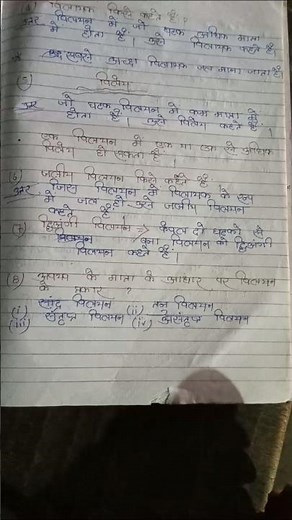 (4) विलायक किसे कहते हैं ?
उत्तर विलयन में जो घटक अधिक मात्रा
में होता है। उसे विलायक कहते हैं
सबसे अच्छा विलायक जल माना जाता है।
(5) विलेय
उत्तर जो घटक विलयन में कम मात्रा में
होता है। उसे विलेय कहते हैं।
एक विलयन में एक या एक से अधिक
विलेय हो सकता है।
(6) जलीय विलयन किसे कहते हैं
उत्तर जिस विलयन में विलायक के रूप
में जल हो। उसे जलीय विलयन
कहते हैं
(7) विलयन ⇒ केवल दो घटकों से
बना विलयन को द्विअंगी
विलयन कहते हैं।
(8) अवयवों के मात्रा के आधार पर विलयन
के प्रकार ?
(i) सांद्र विलयन (ii) तनु विलयन
(iii) संतृप्त विलयन (iv) असंतृप्त विलयन